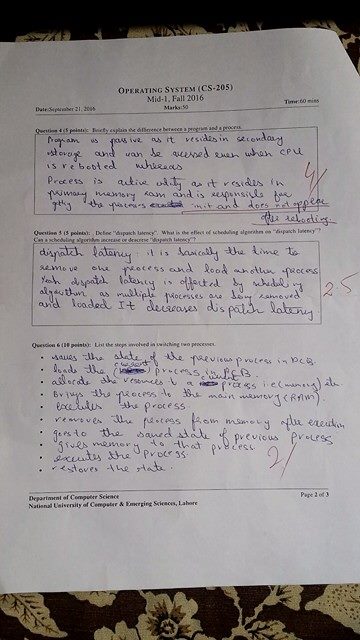 OPERATING SYSTEM (CS-205)
Mid-1, Fall 2016
Date:September 21, 2016 Marks:50 Time:60 mins
Question 4 (5 points): Briefly explain the difference between a program and a process.
Program is passive as it resides in secondary
storage and can be accessed even when CPU
is rebooted whereas
Process is active entity as it resides in
primary memory ram and is responsible for
the processes in it and does not appear
after rebooting.
4/
Question 5 (5 points): Define "dispatch latency". What is the effect of scheduling algorithm on "dispatch latency"?
Can a scheduling algorithm increase or decrease "dispatch latency"?
dispatch latency: it is basically the time to
remove one process and load another process
Yeah dispatch latency is affected by scheduling
algorithm as multiple processes are being removed
and loaded It decreases dispatch latency
2.5
Question 6 (10 points): List the steps involved in switching two processes.
• saves the state of the previous process in PCB.
• loads the (current) process's PCB
• allocate the resources to a current process i.e (memory) etc
• Brings the process to the main memory (RAM).
• Executes the process.
• removes the process from memory after execution
• goes to the saved state of previous process
• gives memory to that process.
• executes the process
• restores the state.
2/
Department of Computer Science Page 2 of 3
National University of Computer & Emerging Sciences, Lahore